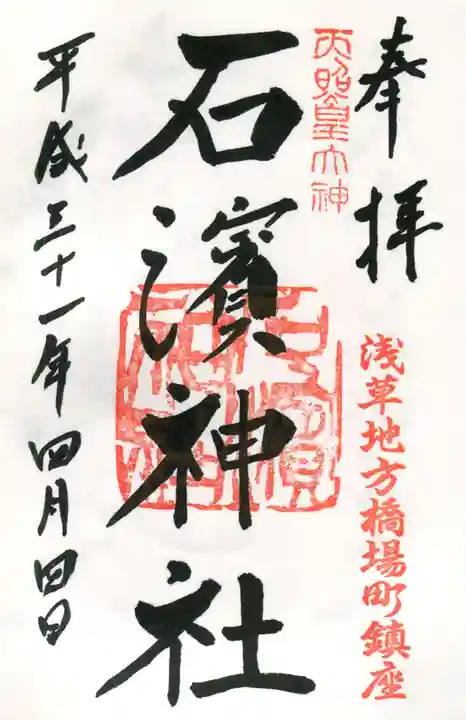 奉拝
浅草地方橋場町鎮座
天照皇大神
石濱神社
石濱神社
平成三十一年四月四日